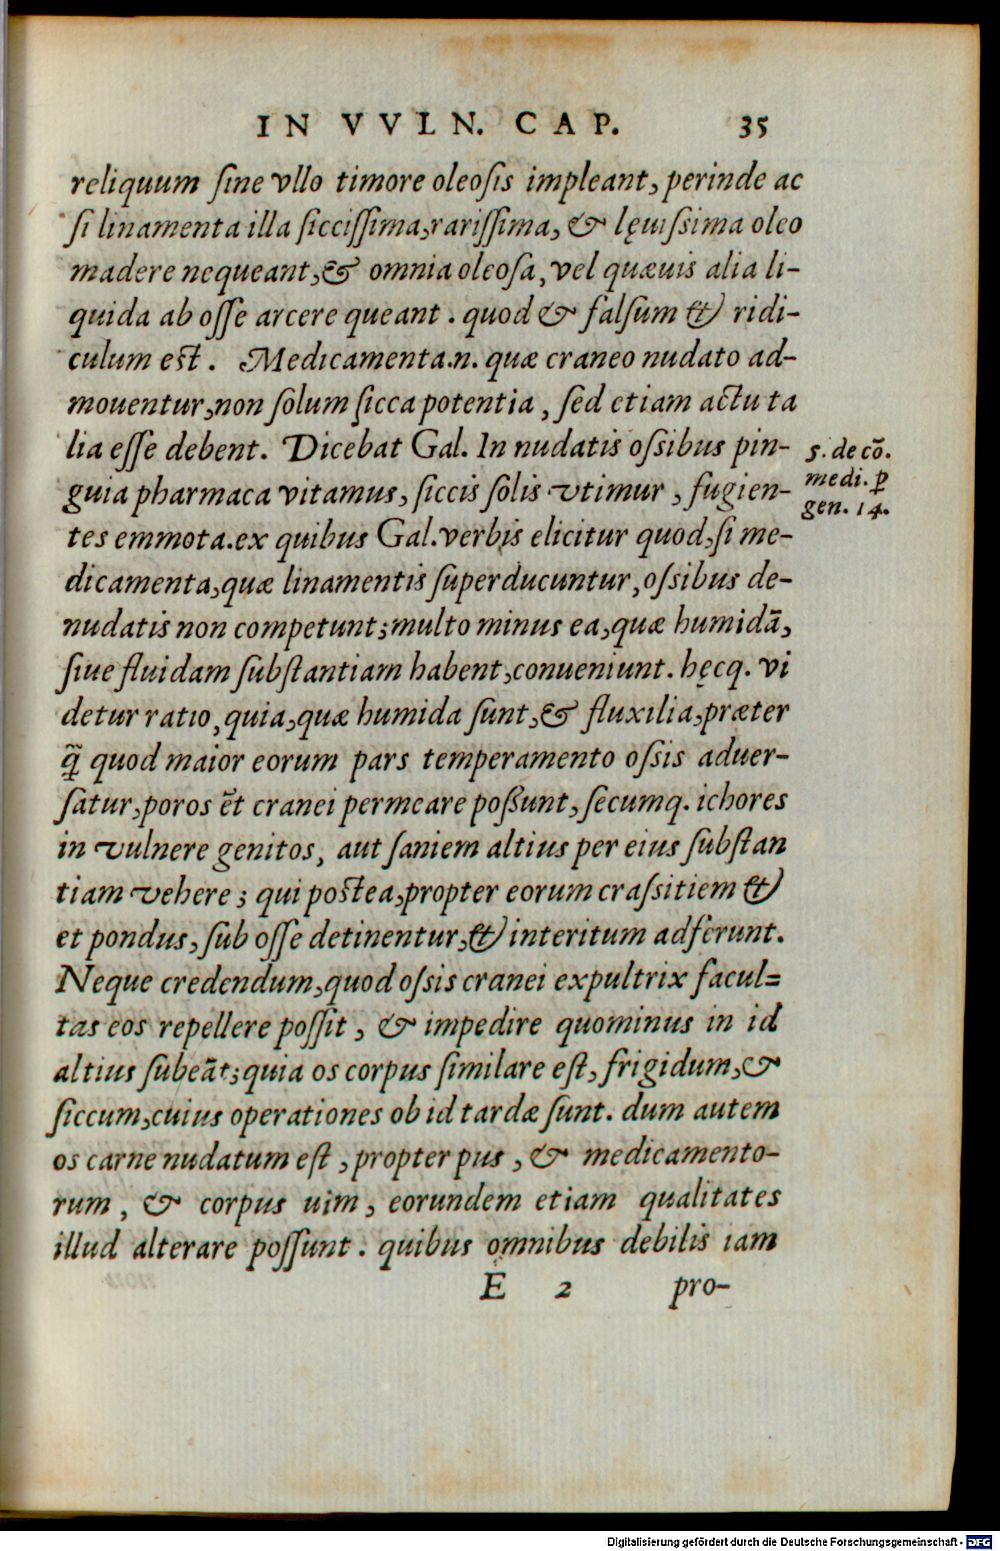 IN VVLN. CAP. 35
reliquum ſine vllo timore oleoſis impleant, perinde ac
ſi linamenta illa ſicciſſima, rariſſima, & lęuiſsima oleo
madere nequeant, & omnia oleoſa, vel quæuis alia li-
quida ab oſſe arcere queant. quod & falſum & ridi-
culum eſt. Medicamenta.n. quæ craneo nudato ad-
mouentur, non ſolum ſicca potentia, ſed etiam actu ta
lia eſſe debent. Dicebat Gal. In nudatis oſsibus pin-
guia pharmaca vitamus, ſiccis ſolis vtimur, fugien-
tes emmota. ex quibus Gal. verbis elicitur quod, ſi me-
dicamenta, quæ linamentis ſuperducuntur, oſsibus de-
nudatis non competunt; multo minus ea, quæ humidā,
ſiue fluidam ſubſtantiam habent, conueniunt. hęcq. vi
detur ratio, quia, quæ humida ſunt, & fluxilia, præter
q̃ quod maior eorum pars temperamento oſsis aduer-
ſatur, poros ēt cranei permeare poßunt, ſecumq. ichores
in vulnere genitos, aut ſaniem altius per eius ſubſtan
tiam vehere; qui poſtea, propter eorum craſsitiem &
et pondus, ſub oſſe detinentur, & interitum adferunt.
Neque credendum, quod oſsis cranei expultrix facul=
tas eos repellere poſſit, & impedire quominus in id
altius ſubeāt; quia os corpus ſimilare eſt, frigidum, &
ſiccum, cuius operationes ob id tardæ ſunt. dum autem
os carne nudatum eſt, propter pus, & medicamento-
rum, & corpus uim, eorundem etiam qualitates
illud alterare poſſunt. quibus omnibus debilis iam
E 2 pro-
5. de cō.
medi. ꝑ
gen. 14.
Digitalisierung gefördert durch die Deutsche Forschungsgemeinschaft - DFG